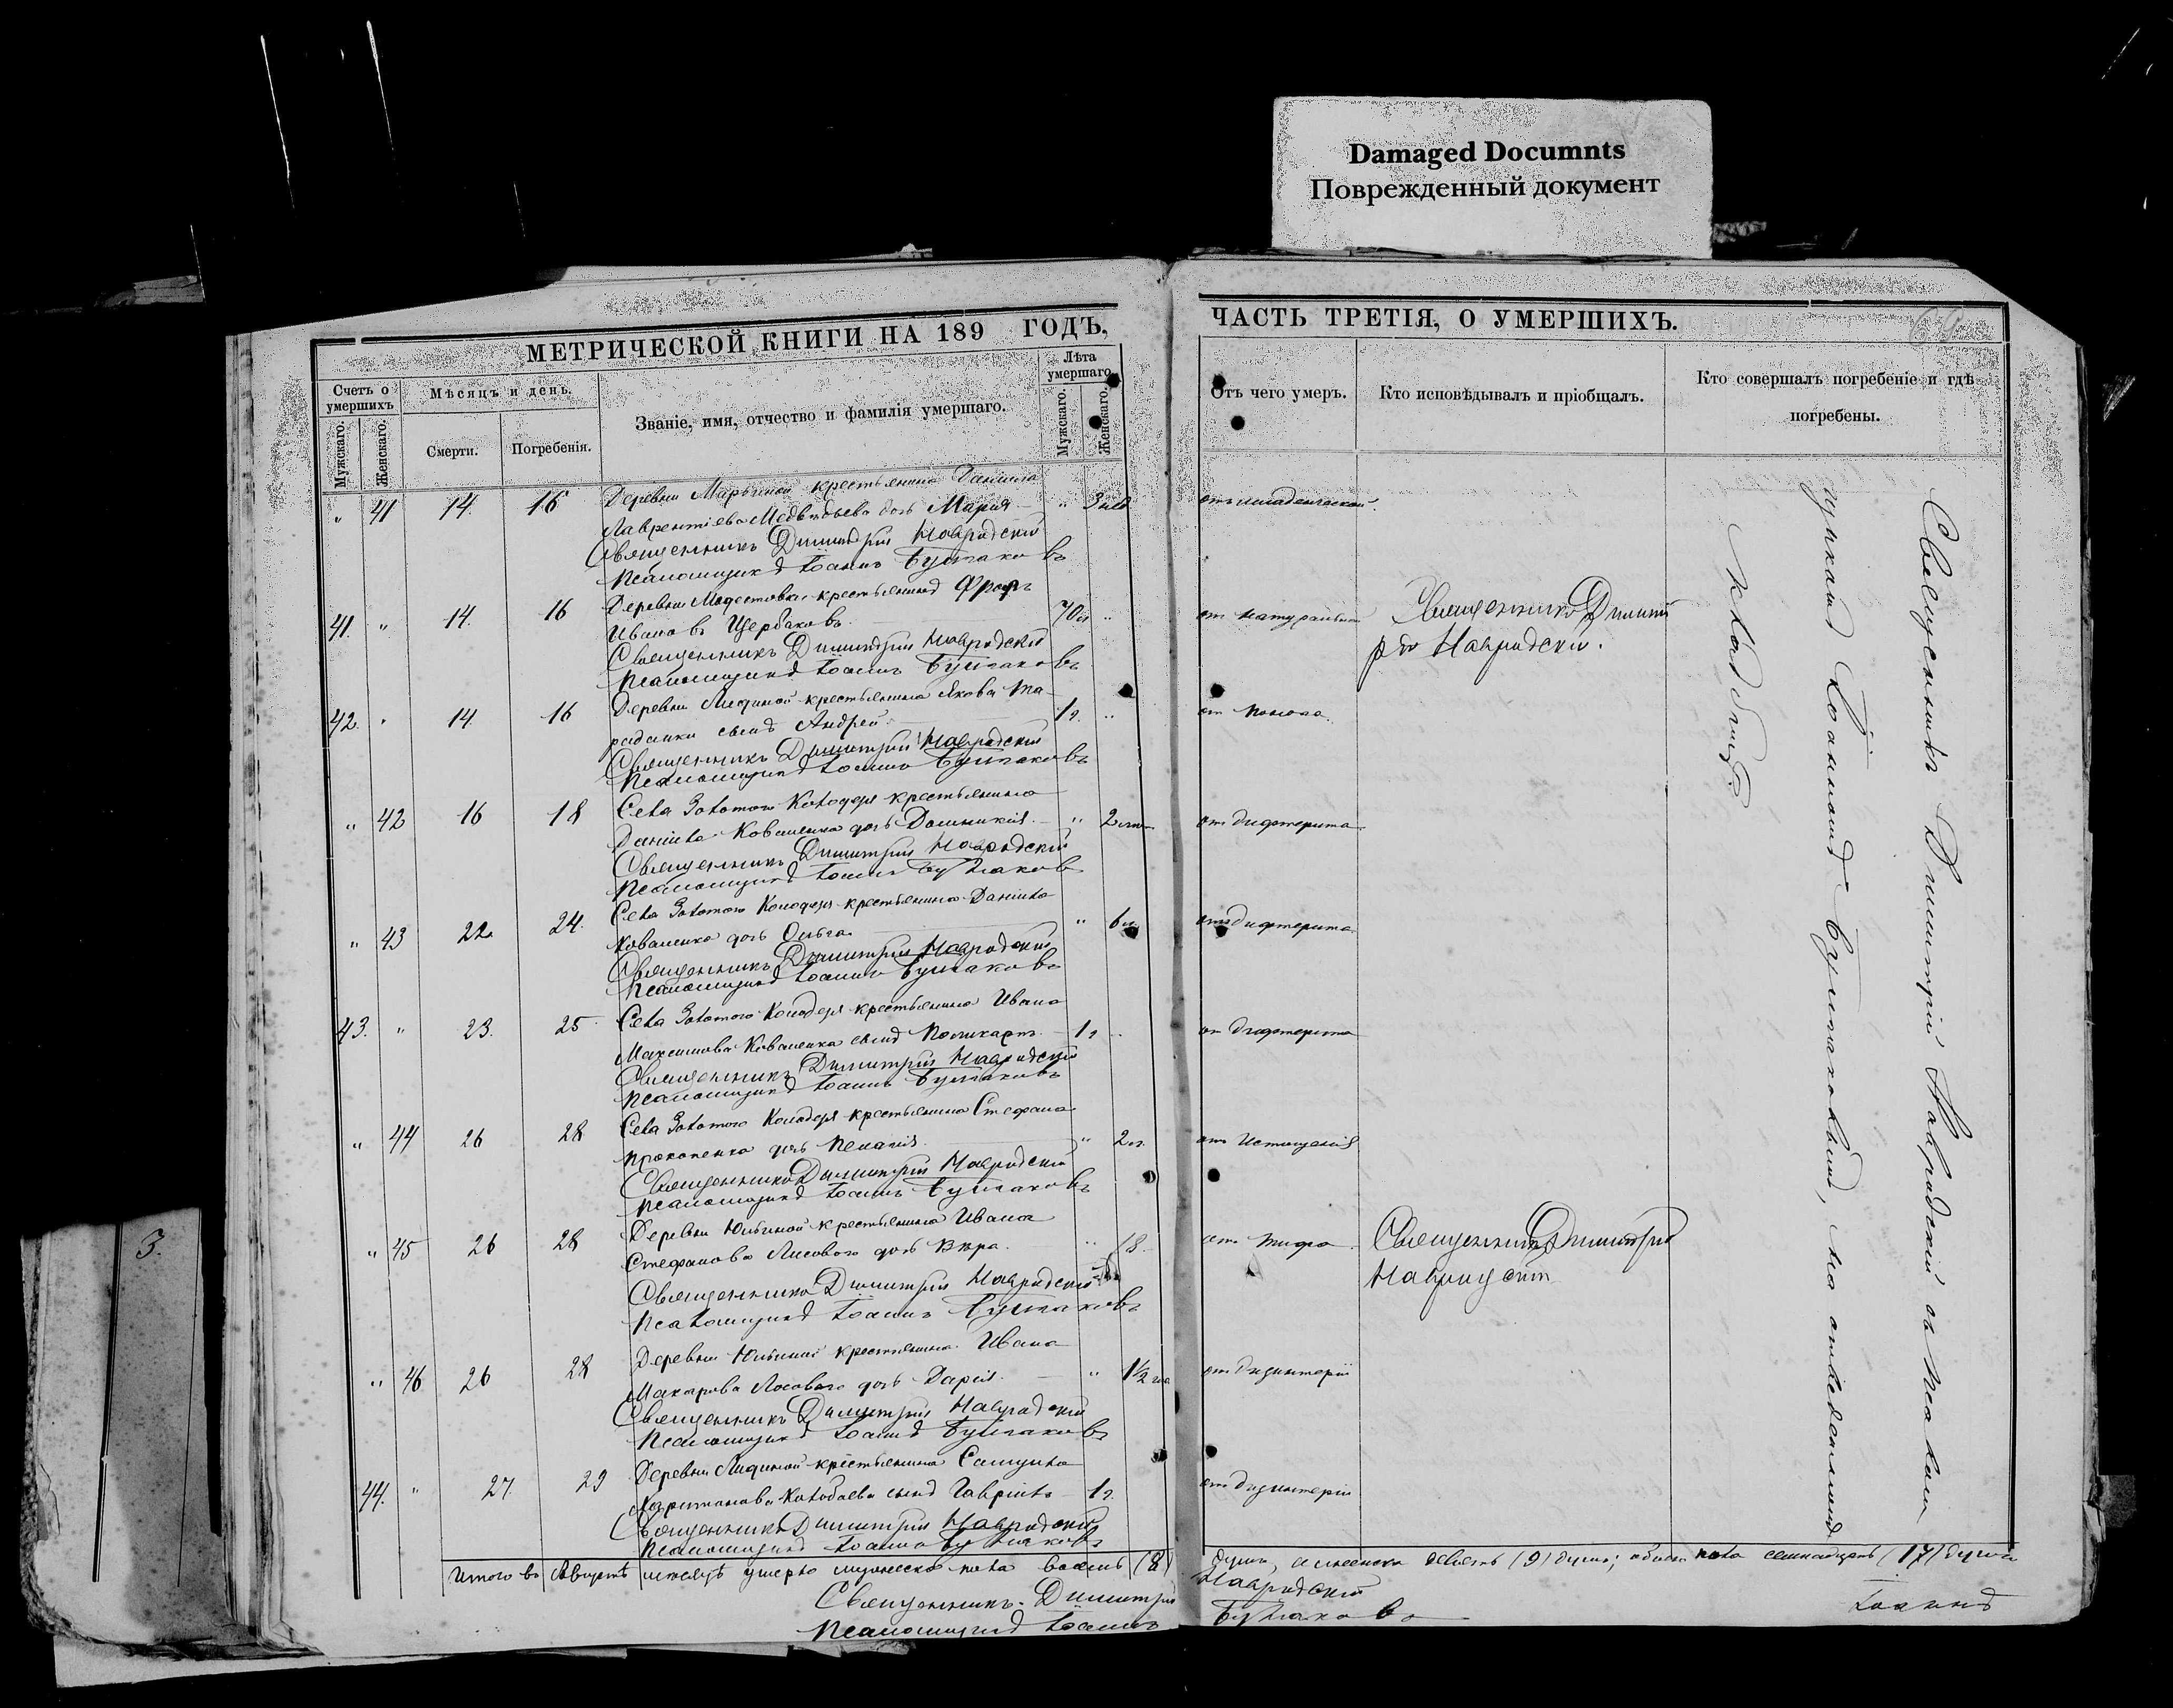 Damaged Documnts
Поврежденный документ
МЕТРИЧЕСКОЙ КНИГИ НА 189 ГОДЪ,
ЧАСТЬ ТРЕТІЯ, О УМЕРШИХЪ.
Счетъ о умершихъ
Мужскаго.
Женскаго.
Мѣсяцъ и день.
Смерти.
Погребенія.
Званіе, имя, отчество и фамилія умершаго.
Лѣта умершаго.
Мужскаго.
Женскаго.
Отъ чего умеръ.
Кто исповѣдывалъ и пріобщалъ.
Кто совершалъ погребеніе и гдѣ погребены.
" 41 14. 16 Деревни Марьиной крестьянина Даніила
Лаврентіева Медвѣдьева дочь Марія " 3 отъ младенческой.
Священникъ Димитрій Навродскій
Псаломщикъ Іоаннъ Булгаковъ
41. " 14. 16 Деревни крестьянинъ Фролъ
Ивановъ Щербаковъ. 70 " отъ натуральной Священникъ Димит
рій Навродскій.
Священникъ Димитрій Навродскій
Псаломщикъ Іоаннъ Булгаковъ
42. " 14 16 Деревни Лидиной крестьянина Якова Та-
ранки сынъ Андрей. 1 г. " отъ поноса.
Священникъ Димитрій Навродскій
Псаломщикъ Іоаннъ Булгаковъ
" 42 16 18 Села Золотого Колодезя крестьянина
Даніила Коваленка дочь Домникія. " 2 отъ дифтерита
Священникъ Димитрій Навродскій
Псаломщикъ Іоаннъ Булгаковъ
" 43 22 24. Села Золотого Колодезя крестьянина Даніила
Коваленка дочь Ольга. " 6 отъ дифтерита
Священникъ Димитрій Навродскій
Псаломщикъ Іоаннъ Булгаковъ
43. " 23. 25 Села Золотого Колодезя крестьянина Ивана
Максимова Коваленка сынъ Поликарпъ. 1 г " отъ дифтерита
Священникъ Димитрій Навродскій
Псаломщикъ Іоаннъ Булгаковъ
" 44 26 28 Села Золотого Колодезя крестьянина Стефана
Прокопенка дочь Пелагія. " 2 отъ истощенія
Священникъ Димитрій Навродскій
Псаломщикъ Іоаннъ Булгаковъ
" 45 26 28 Деревни Юльиной крестьянина Ивана
Стефанова Лисового дочь Вѣра. " 18 отъ тифа Священникъ Димитрій
Навродскій
Священникъ Димитрій Навродскій
Псаломщикъ Іоаннъ Булгаковъ
" 46 26 28 Деревни Юльиной крестьянина Ивана
Макарова Лосового дочь Дарія. " 1½ отъ дизинтеріи
Священникъ Димитрій Навродскій
Псаломщикъ Іоаннъ Булгаковъ
44. " 27. 29 Деревни Лидиной крестьянина Самуила
Харитонова сынъ Гавріилъ 1 г. отъ дизинтеріи
Священникъ Димитрій Навродскій
Псаломщикъ Іоаннъ Булгаковъ
Священникъ Димитрій Навродскій съ псалом
щикомъ Іоанномъ Булгаковымъ, на отведенномъ
кладбищѣ
Итого въ Августѣ мѣсяцѣ умерло мужеска пола восемь (8) душъ, а женска девять (9) душъ; обоего пола семнадцать (17) душъ
Священникъ Димитрій Навродскій
Псаломщикъ Іоаннъ Булгаковъ
Іоаннъ
3.